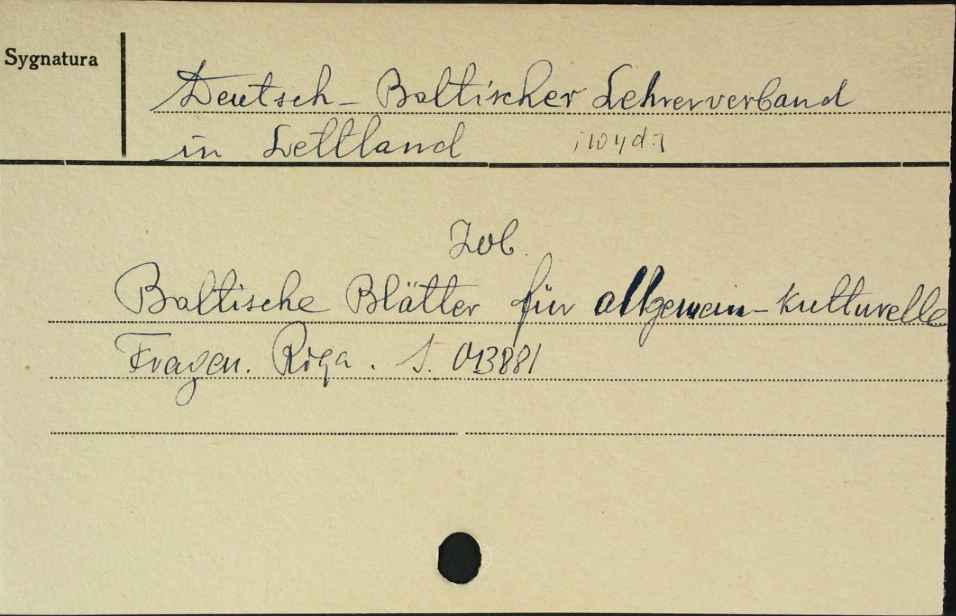 Sygnatura
Deutsch-Baltischer Lehrerverband
in Lettland [wyd.]
Zob.
Baltische Blätter für allgemein-kulturelle
Fragen. Riga. S. 013881